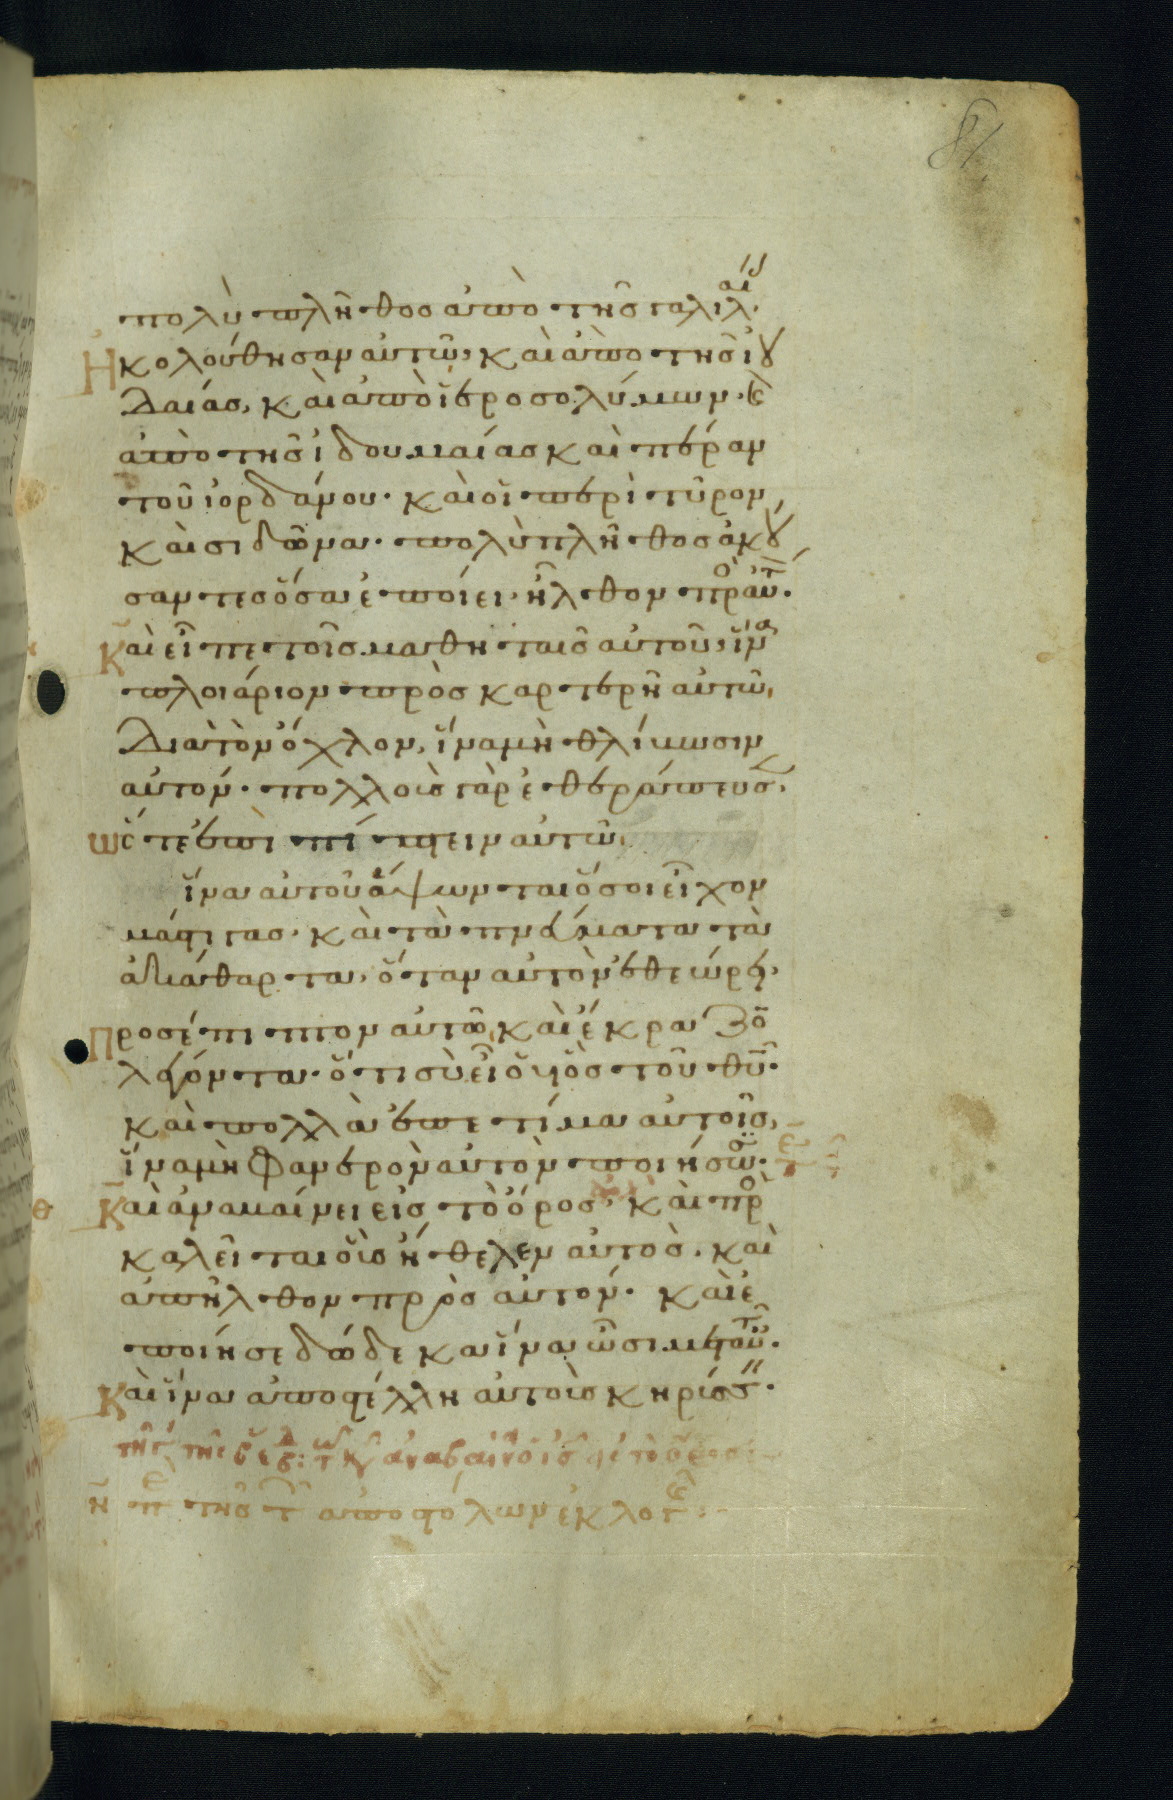 81
πολὺ πλῆθος ἀπὸ τῆς γαλιλαί
Ἠκολούθησαν αὐτῶ, καὶ ἀπο τῆς ἰου
δαίας, καὶ ἀπὸ ἱεροσολύμων. κ
ἀπὸ τῆς ἰδουμαίας καὶ πέραν
τοῦ ἰορδάνου. καὶ οἱ περὶ τῦρον,
καὶ σιδῶνα. πολὺ πλῆθος ἀκού
σαντες ὅσα ἐποίει. ἦλθον πρ αὐτ.
Καὶ εἶπε τοῖς μαθηταῖς αὐτοῦ, ἵνα
πλοιάριον προσκαρτερῆ αὐτῶ,
διὰ τὸν ὄχλον, ἵνα μὴ θλίβωσιν
αὐτόν. πολλοὺς γὰρ ἐθεράπευσ,
ὥστε ἐπιπίπτειν αὐτῶ,
ἵνα αὐτοῦ ἅψωνται ὅσοι εἶχον
μάστιγας. καὶ τὰ πνεύματα τὰ
ἀκάθαρτα, ὅταν αὐτὸν ἐθεώρει,
Προσέπιπτον αὐτῶ, καὶ ἔκραζο
λέγοντα. ὅτι σὺ εἶ ὁ υἱὸς τοῦ θυ.
καὶ πολλὰ ἐπετίμα αὐτοῖς,
ἵνα μὴ φανερὸν αὐτὸν ποιήσω.
Καὶ ἀναβαίνει εἰς τὸ ὄρος, καὶ προ
καλεῖται οὓς ἤθελεν αὐτός. καὶ
ἀπῆλθον πρὸς αὐτόν. καὶ ἐ
ποίησε δώδεκα ἵνα ὦσι μετ αὐτοῦ.
Καὶ ἵνα ἀποστέλλη αὐτοὺς κηρύσσ.
η π τῆς τ ἀποστόλων ἐκλογ